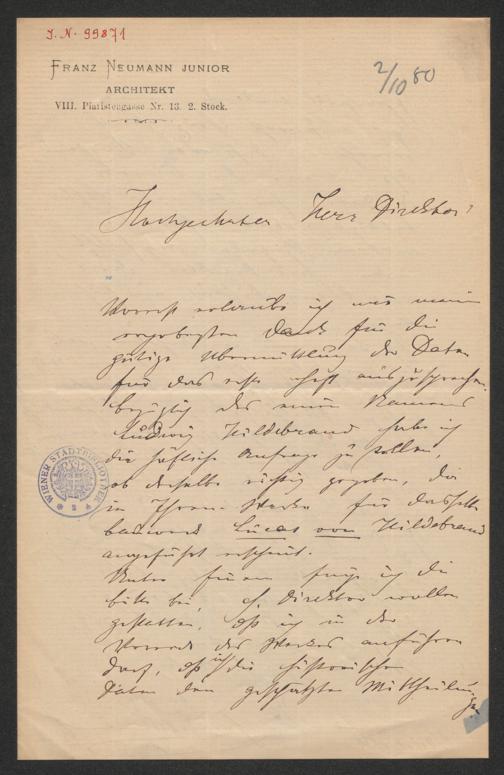 J. N. 99871
FRANZ NEUMANN JUNIOR
ARCHITEKT
VIII. Piaristengasse Nr. 13. 2. Stock.
2/10 80
Hochgeehrter Herr Direktor!
Vorerst erlaube ich mir meinen
ergebensten Dank für die
gütige Übermittlung der Daten
für das erste Heft auszusprechen.
bezüglich des Namens
Ludwig Hildebrand habe ich
die höfliche Anfrage zu stellen,
ob derselbe richtig gegeben, da
in Ihrem Werke für dasselbe
Bauwerk Lucas von Hildebrand
angeführt erscheint.
füge ich die
Bitte bei, H. Direktor wollen
gestatten, daß ich in der
Vorrede des Werkes anführen
darf, daß ich die historischen
Daten den geschätzten Mittheilungen
WIENER STADTBIBLIOTHEK